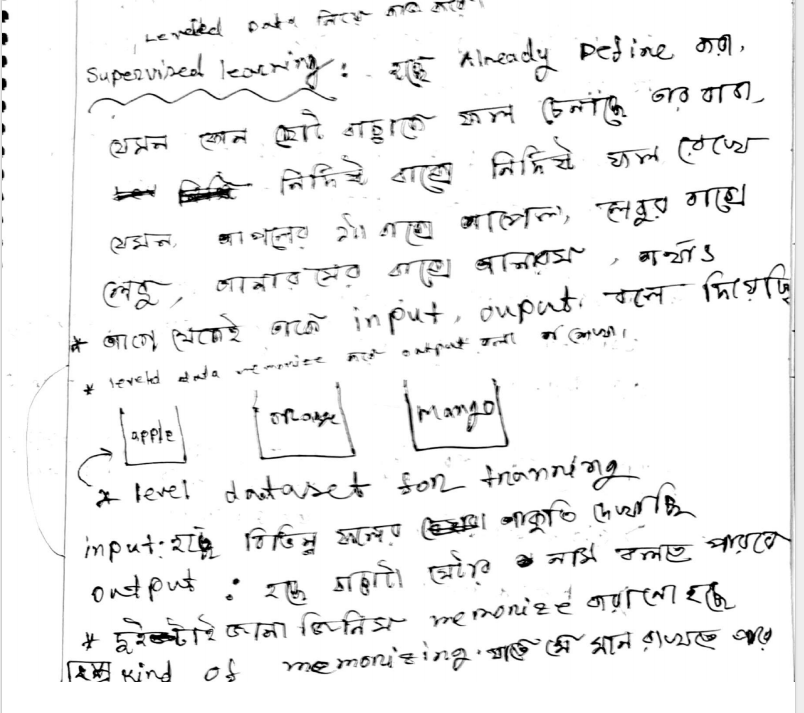 Leveled Data নিয়ে কাজ করে
Supervised learning: হচ্ছে Already Define করা,
যেমন কোন ছোট বাচ্চাকে ফল চেনাচ্ছে তার বাবা,
নির্দিষ্ট বাক্সে নির্দিষ্ট ফল রেখে
যেমন, আপেলের বাক্সে আপেল, লেবুর বাক্সে
লেবু, আনারসের বাক্সে আনারস, অর্থাৎ
* আগে থেকেই তাকে input, ouput, বলে দিয়েছি
* leveld data memorize করে output বলা
apple
orange
Mango
* level dataset for tranning
input: হচ্ছে বিভিন্ন ফলের আকৃতি দেখাচ্ছি
output: হচ্ছে বাচ্চাটা সেটার নাম বলতে পারবে
* দুইটাই জানা জিনিস memorize করানো হচ্ছে
kind of memorizing. যাতে সে মনে রাখতে পারে